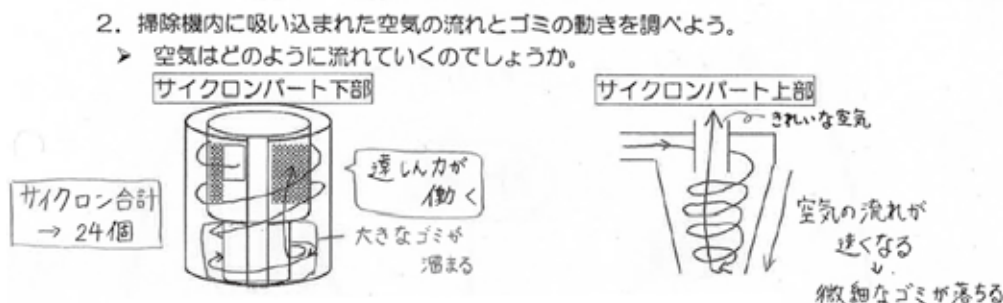 2．掃除機内に吸い込まれた空気の流れとゴミの動きを調べよう。
➤ 空気はどのように流れていくのでしょうか。
サイクロンパート下部
サイクロン合計
→ 24個
遠しん力が
働く
大きなゴミが
溜まる
サイクロンパート上部
きれいな空気
空気の流れが
速くなる
↓
微細なゴミが落ちる